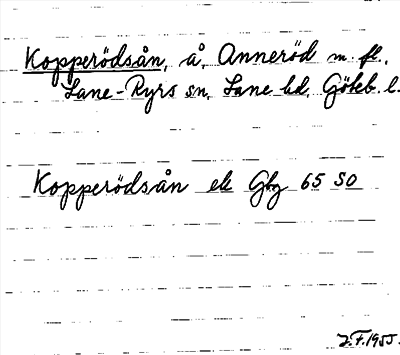 Kopperödsån, å, Anneröd m. fl.,
Lane-Ryrs sn, Lane hd, Göteb. l.
Kopperödsån ek Gbg 65 SO
J.F. 1955.